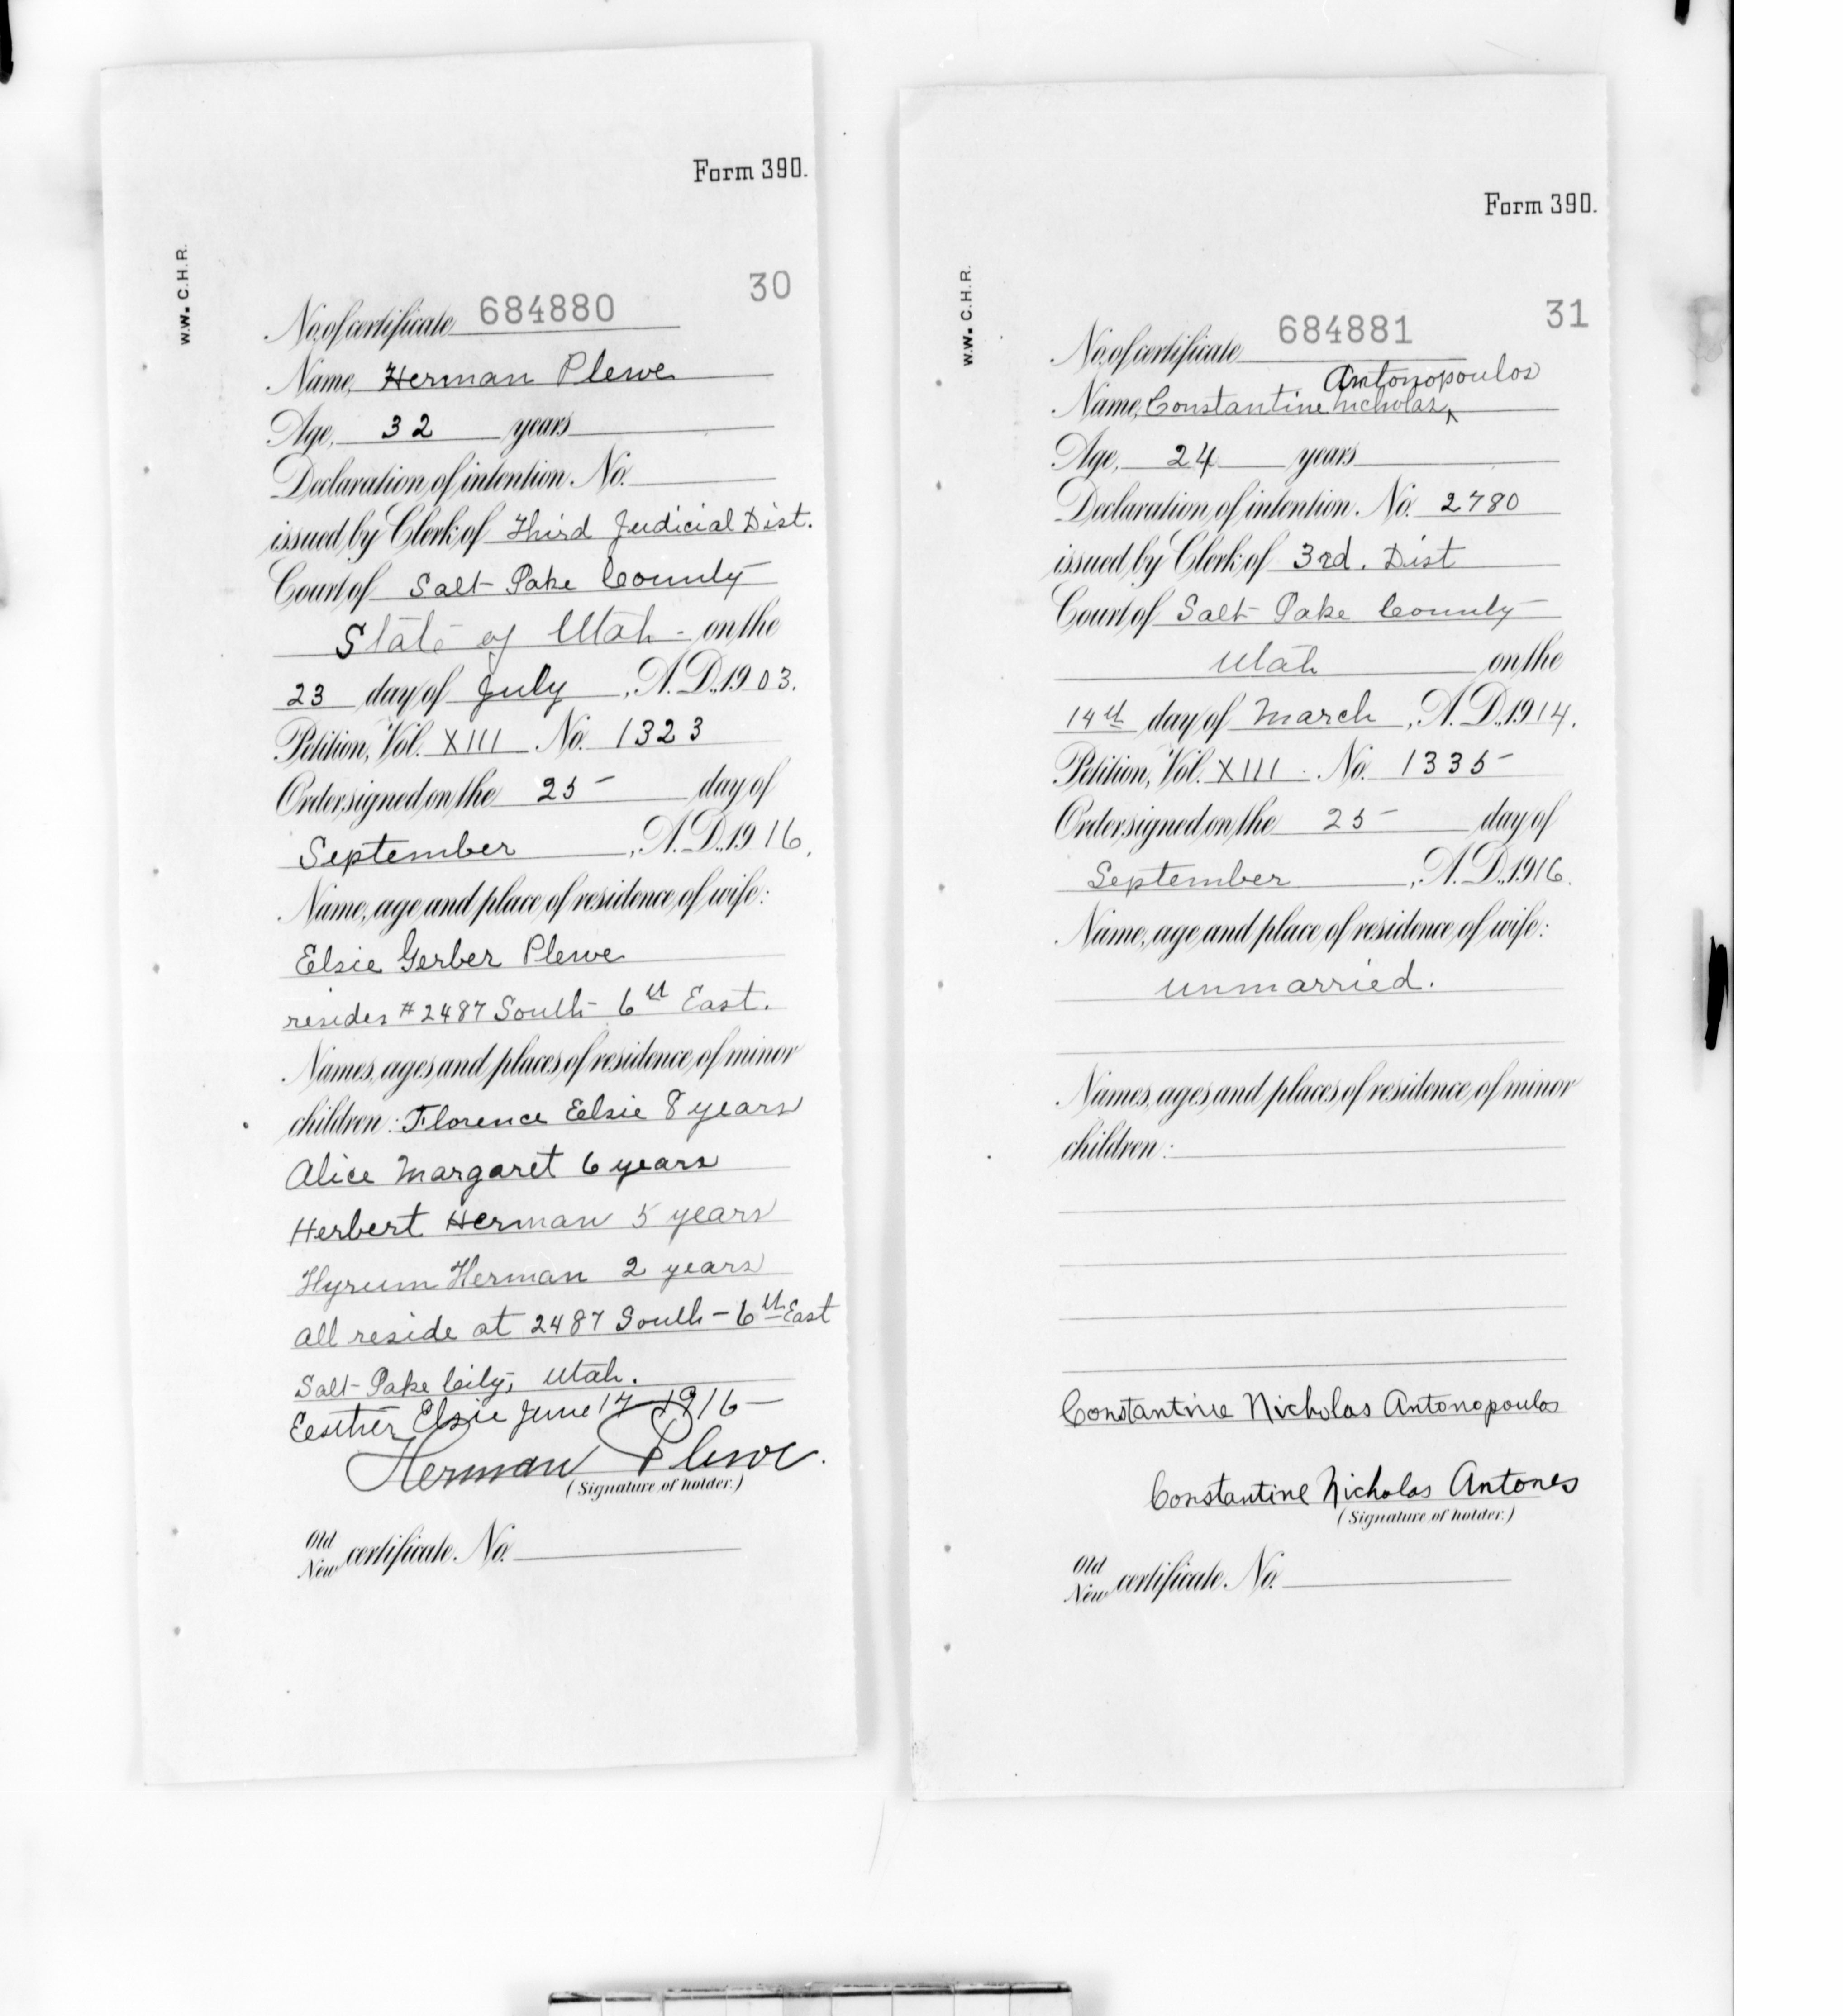 Form 390.
W.W. C.H.R.
30
No. of certificate 684880
Name, Herman Plewe
Age, 32 years
Declaration of intention No.
issued by Clerk of Third Judicial Dist.
Court of Salt Lake County
State of Utah on the
23 day of July, A.D. 1903.
Petition, Vol. XIII No. 1323
Order signed on the 25 day of
September, A.D. 1916.
Name, age and place of residence of wife:
Elsie Gerber Plewe
resides #2487 South 6th East.
Names, ages and places of residence of minor
children: Florence Elsie 8 years
Alice Margaret 6 years
Herbert Herman 5 years
Hyrum Herman 2 years
all reside at 2487 South - 6th East
Salt Lake City, Utah.
Eesther Elsie June 17 1916
Herman Plewe.
(Signature of holder.)
Old
New certificate No.
Form 390.
W.W. C.H.R.
31
No. of certificate 684881
Antonopoulos
Name, Constantine Nicholas ^
Age, 24 years
Declaration of intention No. 2780
issued by Clerk of 3rd. Dist
Court of Salt Lake County
Utah on the
14th day of March, A.D. 1914.
Petition, Vol. XIII No. 1335
Order signed on the 25 day of
September, A.D. 1916.
Name, age and place of residence of wife:
unmarried.
Names, ages and places of residence of minor
children:
Constantine Nicholas Antonopoulos
Constantine Nicholas Antones
(Signature of holder.)
Old
New certificate No.